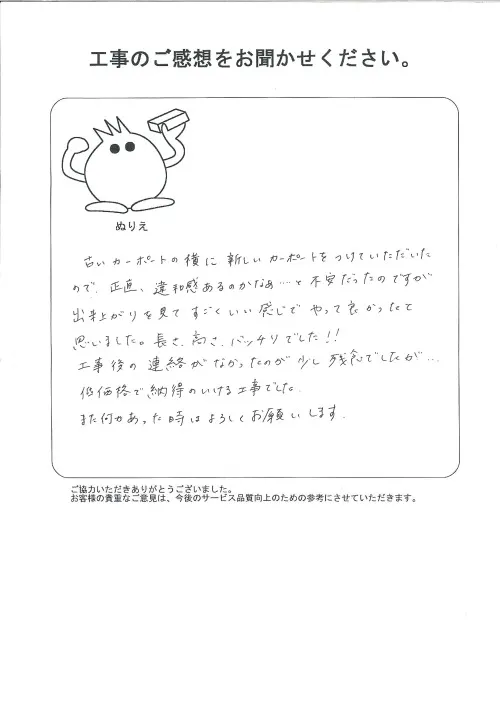 工事のご感想をお聞かせください。
ぬりえ
古いカーポートの横に新しいカーポートをつけていただいた
ので、正直、違和感あるのかなぁ…と不安だったのですが
出来上がりを見てすごくいい感じでやって良かったて
思いました。長さ、高さ、バッチリでした!!
工事後の連絡がなかったのが少し残念でしたが…
低価格で納得のいける工事でした。
また何かあった時はよろしくお願いします。
ご協力いただきありがとうございました。
お客様の貴重なご意見は、今後のサービス品質向上のための参考にさせていただきます。